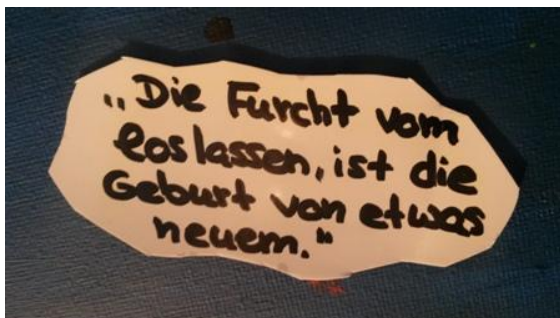 „Die Furcht vom
loslassen, ist die
Geburt von etwas
neuem."